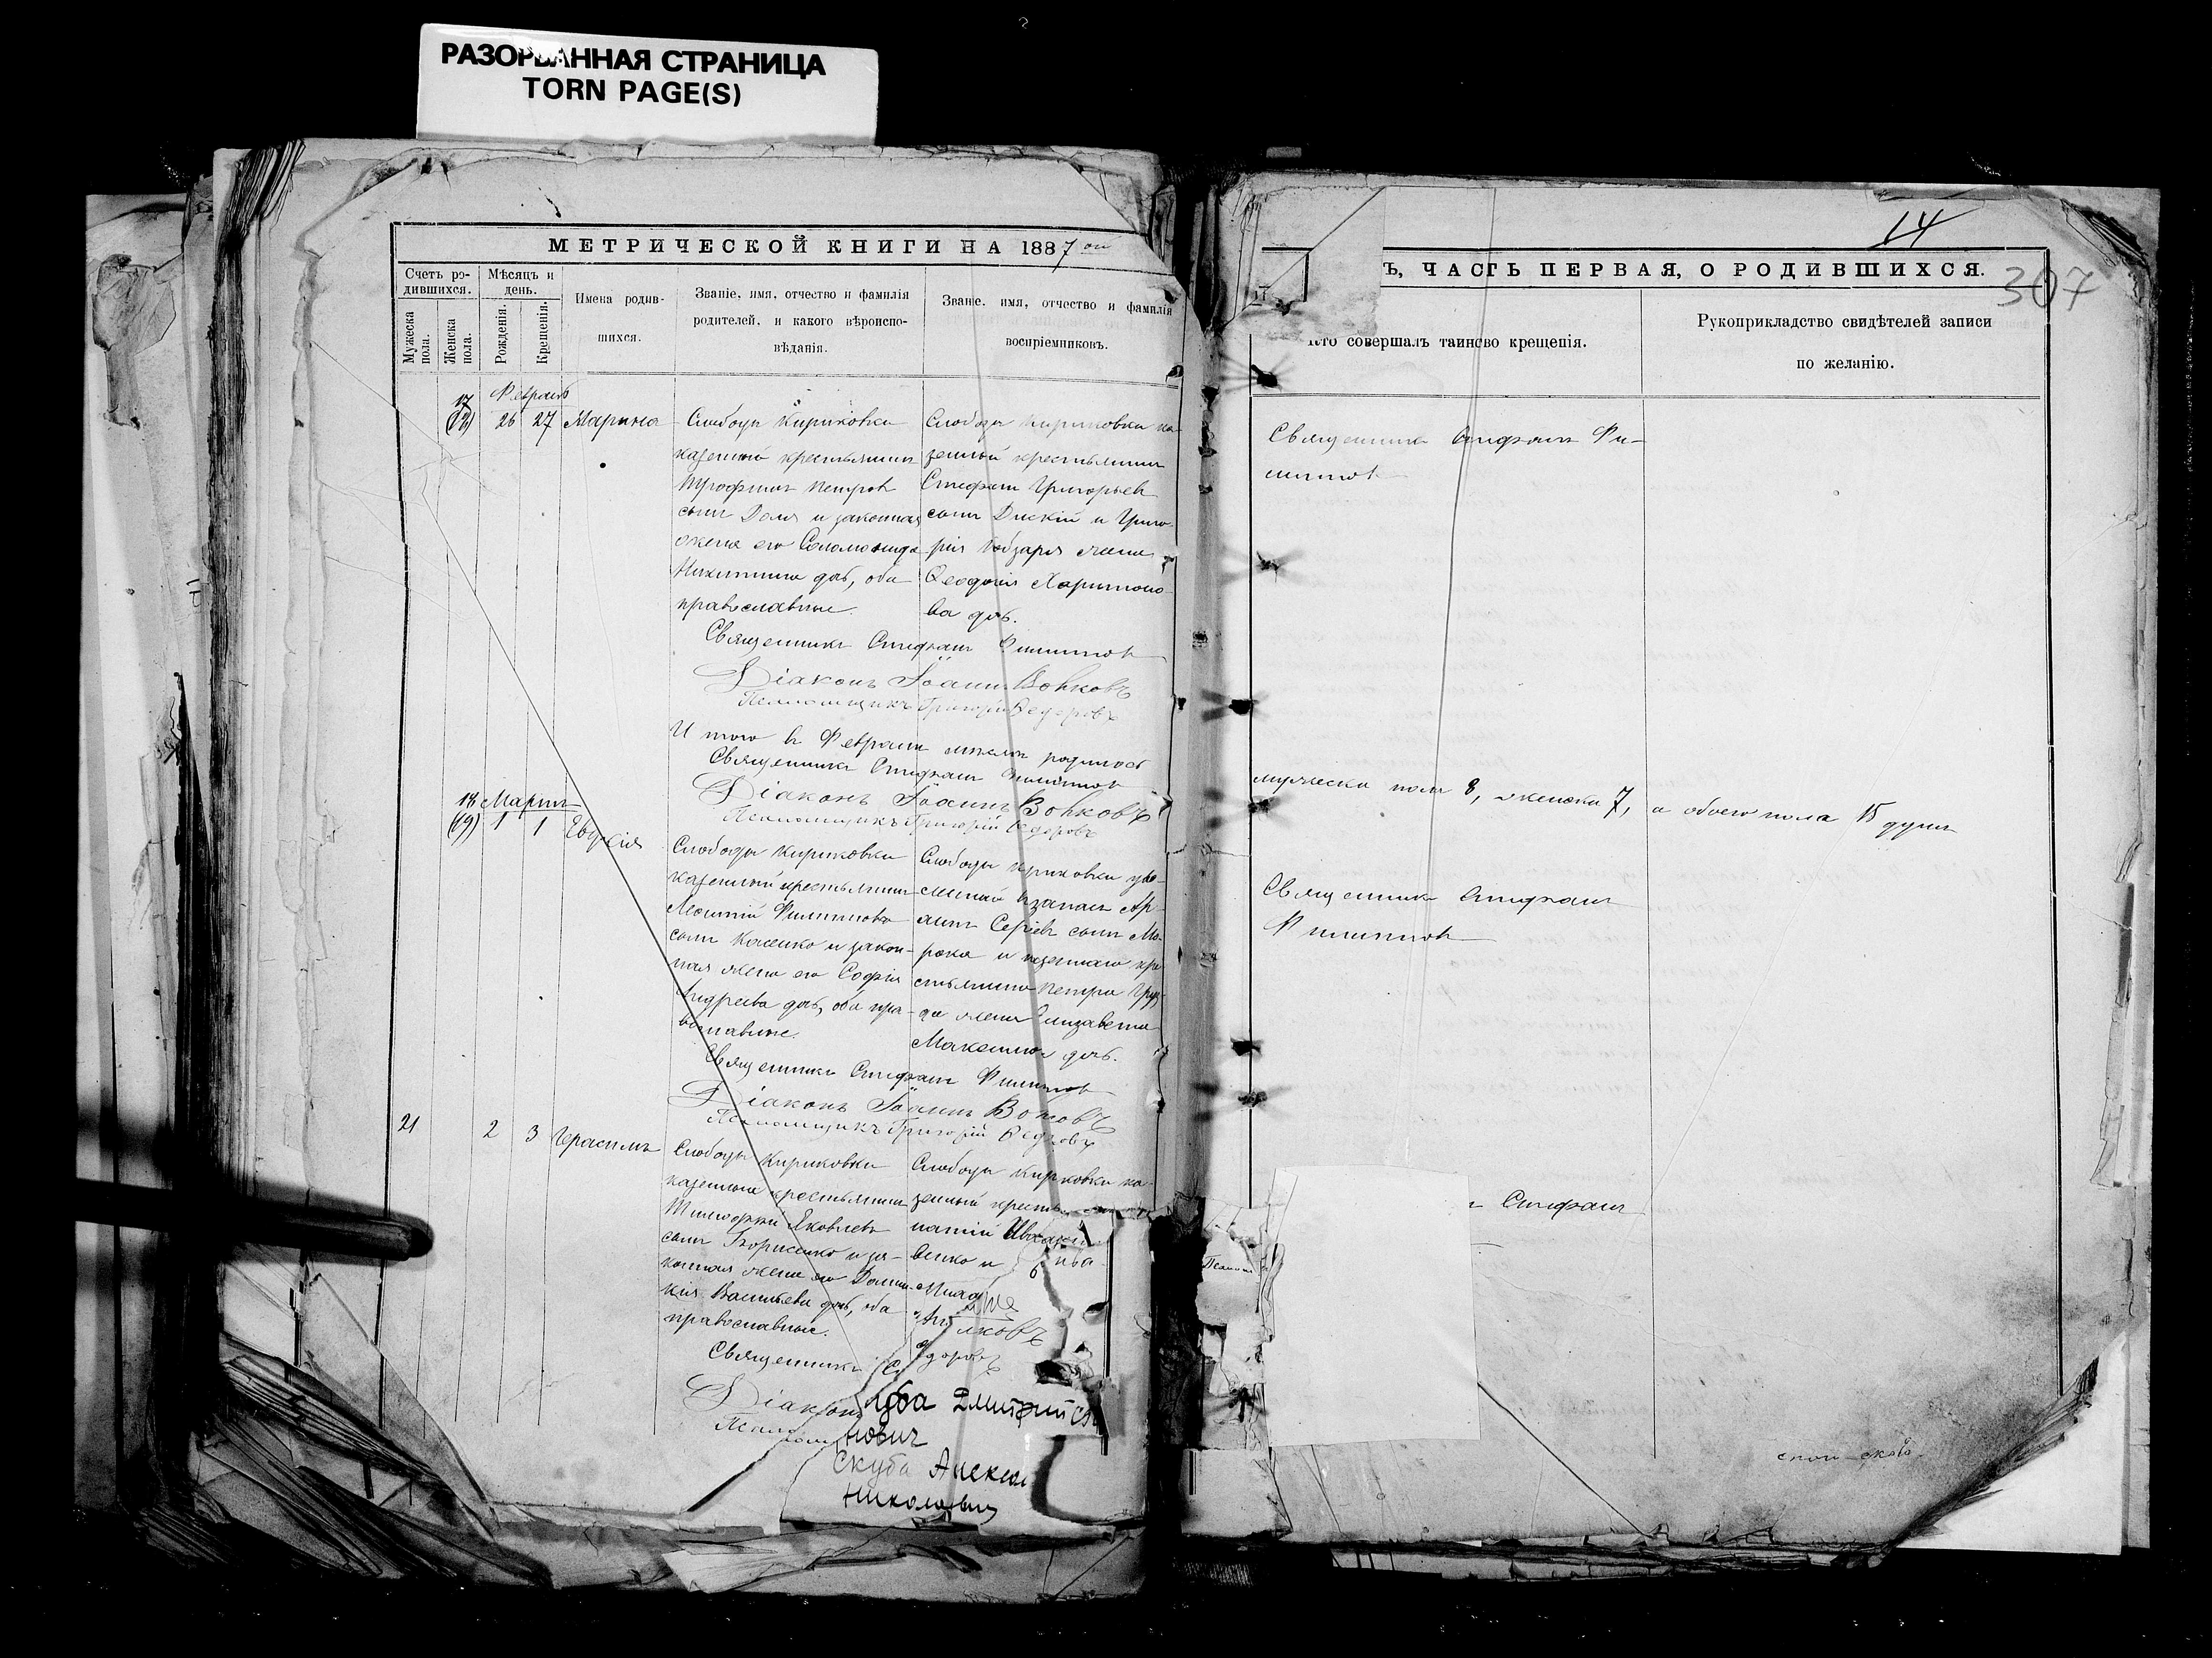 РАЗОРВАННАЯ СТРАНИЦА
TORN PAGE(S)
МЕТРИЧЕСКОЙ КНИГИ НА 1887 ой
Счетъ ро-
дившихся.
Мужеска
пола.
Женска
пола.
Мѣсяцъ и
день.
Рожденія.
Крещенія.
Имена родив-
шихся.
Званіе, имя, отчество и фамилія
родителей, и какого вѣроиспо-
вѣданія.
Званіе, имя, отчество и фамилія
воспріемниковъ.
17
Февраль
26 27 Марина
Слободы Кириковки
казенный крестьянинъ
Трофимъ Петровъ
сынъ Доля и законная
жена его Соломонида
Никитина дочь, оба
православные.
Слободы Кириковки ка-
зенный крестьянинъ
Стефанъ Григорьевъ
сынъ Дикій и Григо-
рія Кобзаря жена
Ѳеодосія Харитоно-
ва дочь.
Священникъ Стефанъ Филипповъ
Діаконъ Іоаннъ Вовковъ
Псаломщикъ Григорій Ѳедоровъ
Итого въ Февралѣ мѣсяцѣ родилось
Священникъ Стефанъ Филипповъ
Діаконъ Іоаннъ Вовковъ
Псаломщикъ Григорій Ѳедоровъ
18 Мартъ
(19) 1 1 Евдокія
Слободы Кириковки
казенный крестьянинъ
Леонтій Филипповъ
сынъ Касенко и закон-
ная жена его Софія
Андреева дочь, оба пра-
вославные.
Слободы Кириковки
Сергіевъ сынъ Мо-
и казеннаго кре-
стьянина Петра
жена Елизавета
Максимова дочь.
Священникъ Стефанъ Филипповъ
Діаконъ Іоаннъ Вовковъ
Псаломщикъ Григорій Ѳедоровъ
21 2 3 Герасимъ
Слободы Кириковки
казенный крестьянинъ
Тимофей Яковлевъ
сынъ Борисенко и за-
конная жена его Домни-
кія Васильева дочь, оба
православные.
Слободы Кириковки ка-
зенный
Священникъ
Діаконъ
Дмитрий
нович
Скуба Алексей
Николаевич
14
307
Ъ, ЧАСТЬ ПЕРВАЯ, О РОДИВШИХСЯ.
Кто совершалъ таинство крещенія.
Рукоприкладство свидѣтелей записи
по желанію.
Священникъ Стефанъ Фи-
липповъ
мужеска пола 8, женска 7, а обоего пола 15 душъ
Священникъ Стефанъ
Филипповъ
Стефанъ